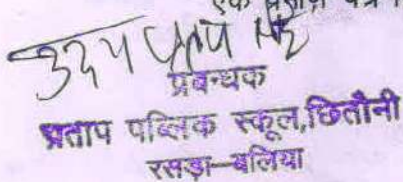 एक
उदय प्रताप सिंह
प्रबन्धक
प्रताप पब्लिक स्कूल,छितौनी
रसड़ा–बलिया